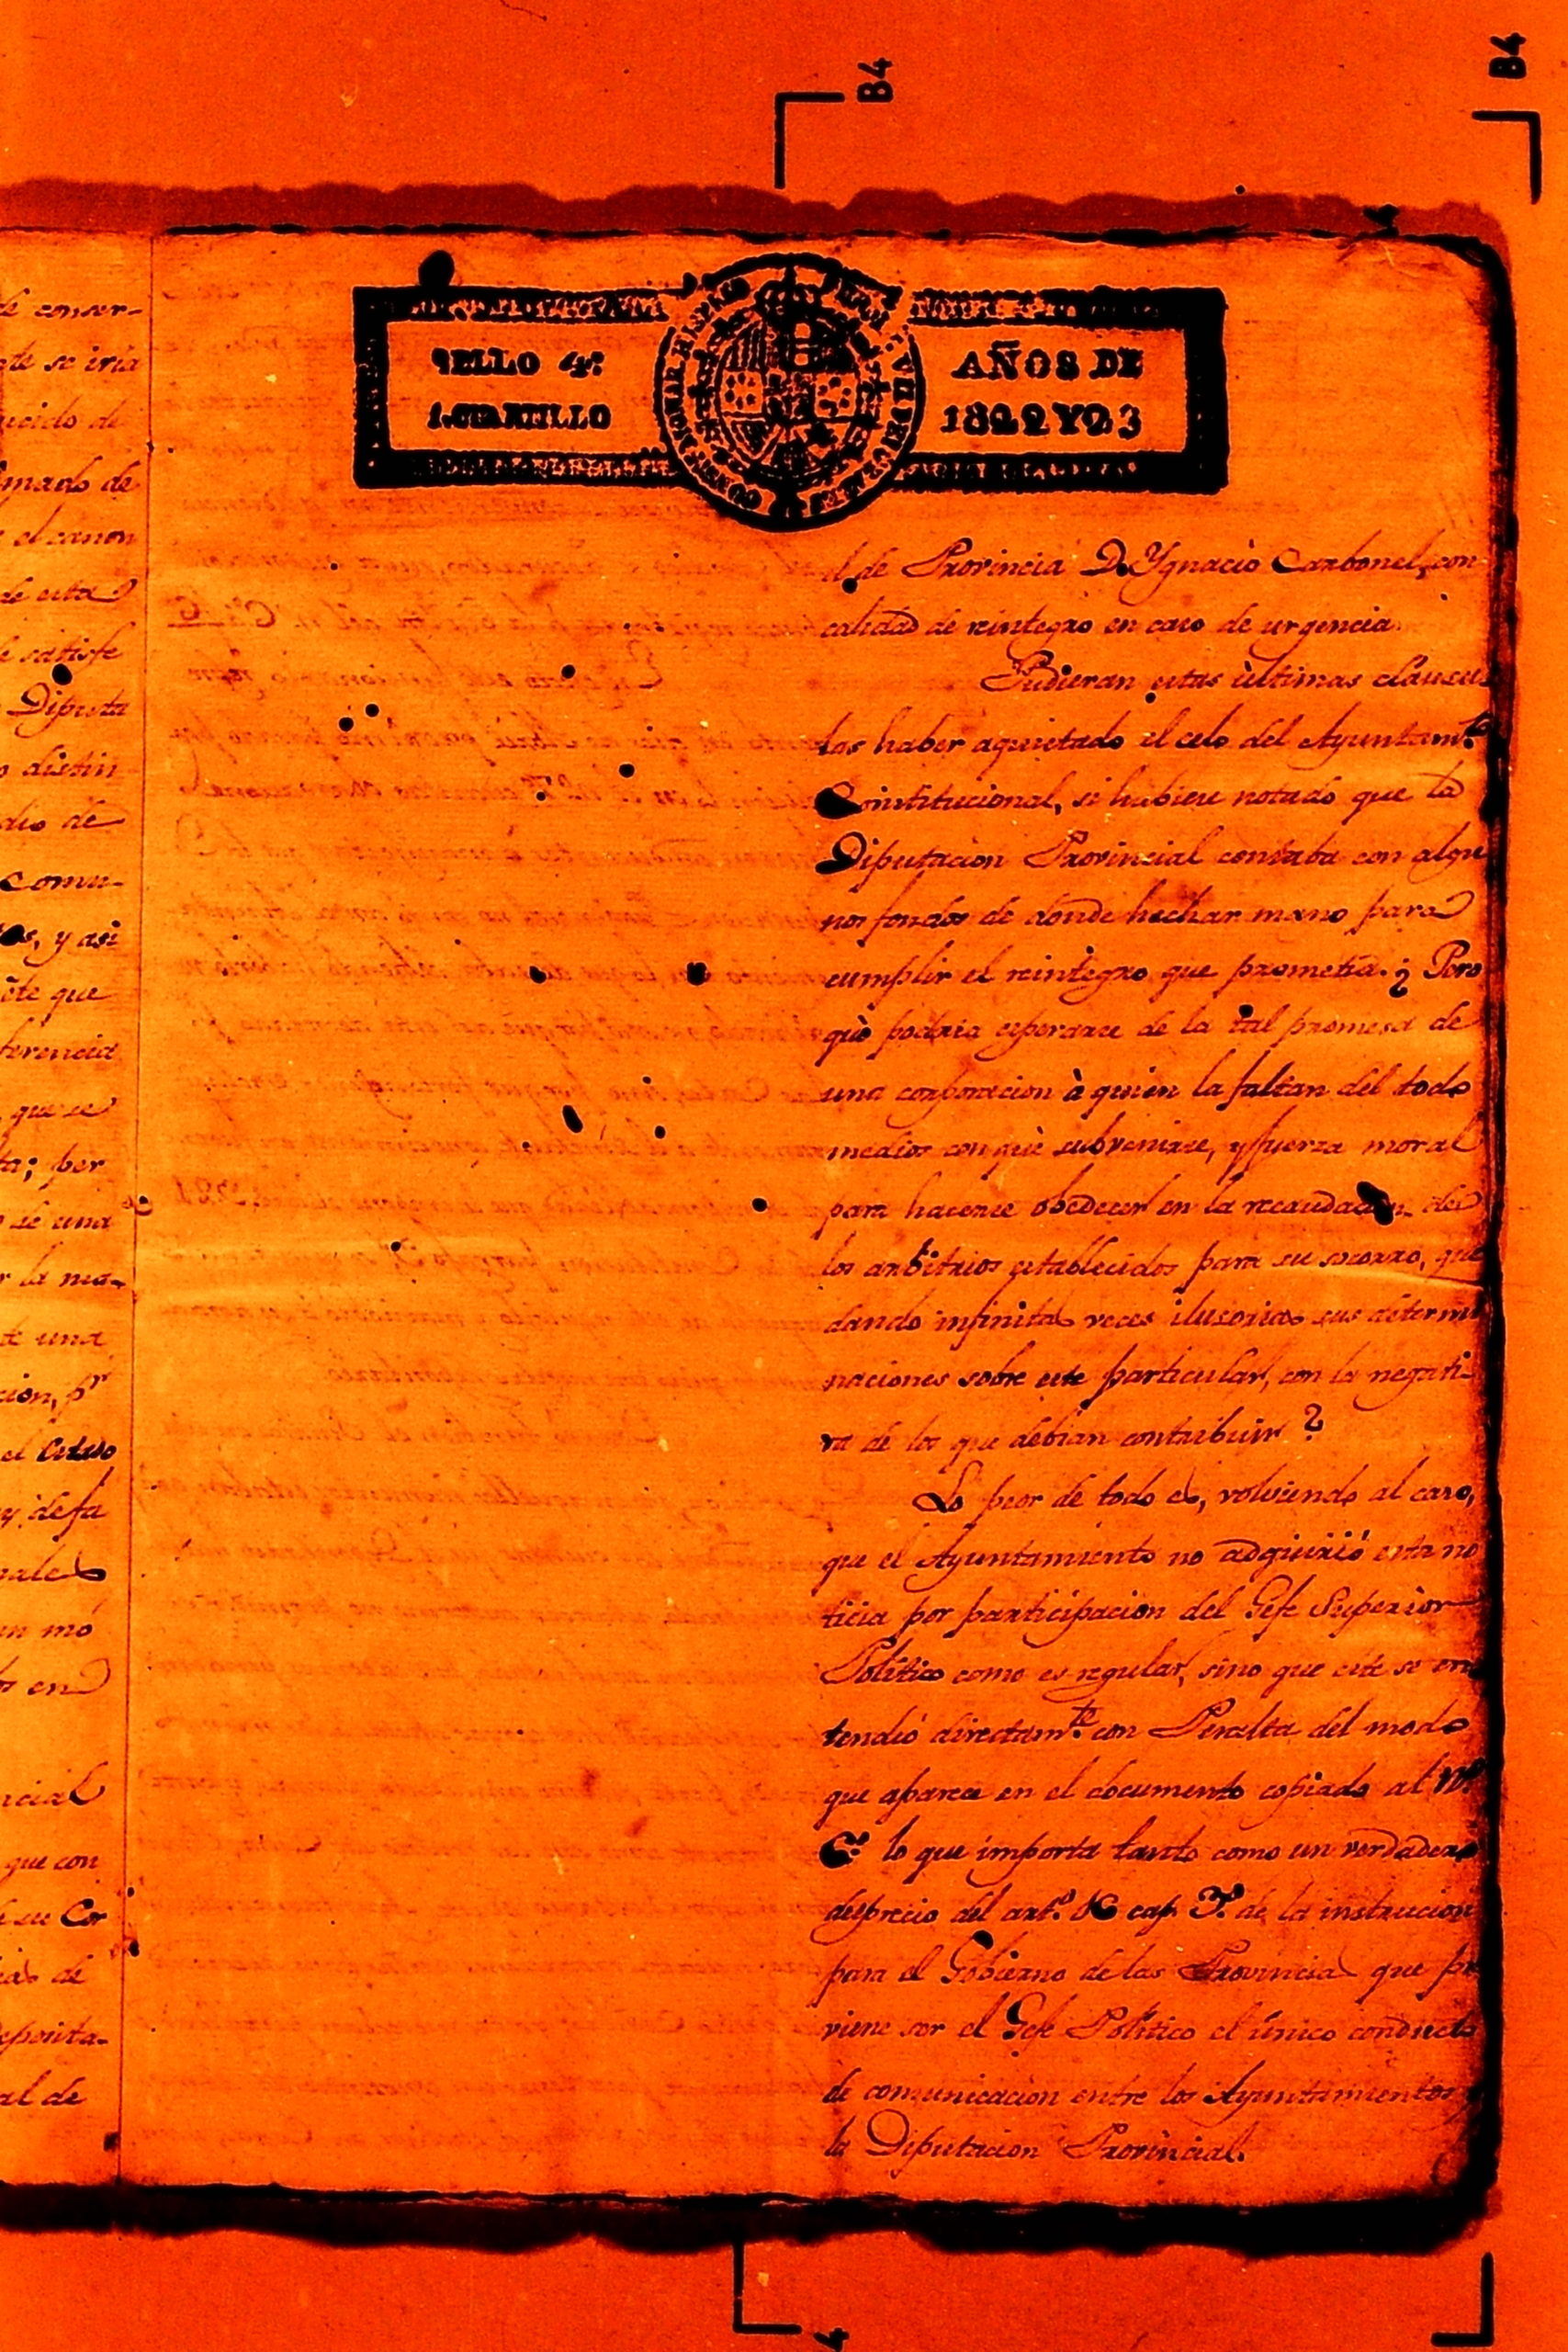 B4
B4
SELLO 4º
AÑOS DE
1. CUARTILLO
1822 Y 23
l de Provincia D. Ygnacio Carbonel, con
calidad de reintegro en caso de urgencia.
Pudieran estas últimas cláusu
las haber aquietado el celo del Ayuntamto
Constitucional, si hubiese notado que la
Diputacion Provincial contaba con algu
nos fondos de donde hechar mano para
cumplir el reintegro que prometia. ¿Pero
què podria esperarse de la tal promesa de
una corporacion à quien la faltan del todo
medios con què subvenirse, y fuerza moral
para hacerse obedecer en la recaudacion de
los arbitrios establecidos para su socorro, que
dando infinitas veces ilusorias sus determi
naciones sobre este particular, con la negati-
va de los que debian contribuir?
Lo peor de todo es, volviendo al caso,
que el Ayuntamiento no adquirió esta no
ticia por participacion del Gefe Superior
Político como es regular, sino que este se en
tendió directamte con Peralta del modo
que aparece en el documento copiado al Nº
6º lo que importa tanto como un verdadero
desprecio del artº cap. 3º de la instruccion
para el Gobierno de las Provincias que pre
viene ser el Gefe Político el único conducto
de comunicacion entre los Ayuntamientos y
la Diputacion Provincial.
de conser-
te se iria
ucido de
mado de
el canon
de esta
satisfe
Diputa
distin
dio de
comu-
os, y asi
ote que
ferencia
que se
ta; por
de una
r la ma-
te una
cion, pr
el
y defa
nales
un mó
os en
ncial
que con
su Cor
as de
eposita-
al de
4